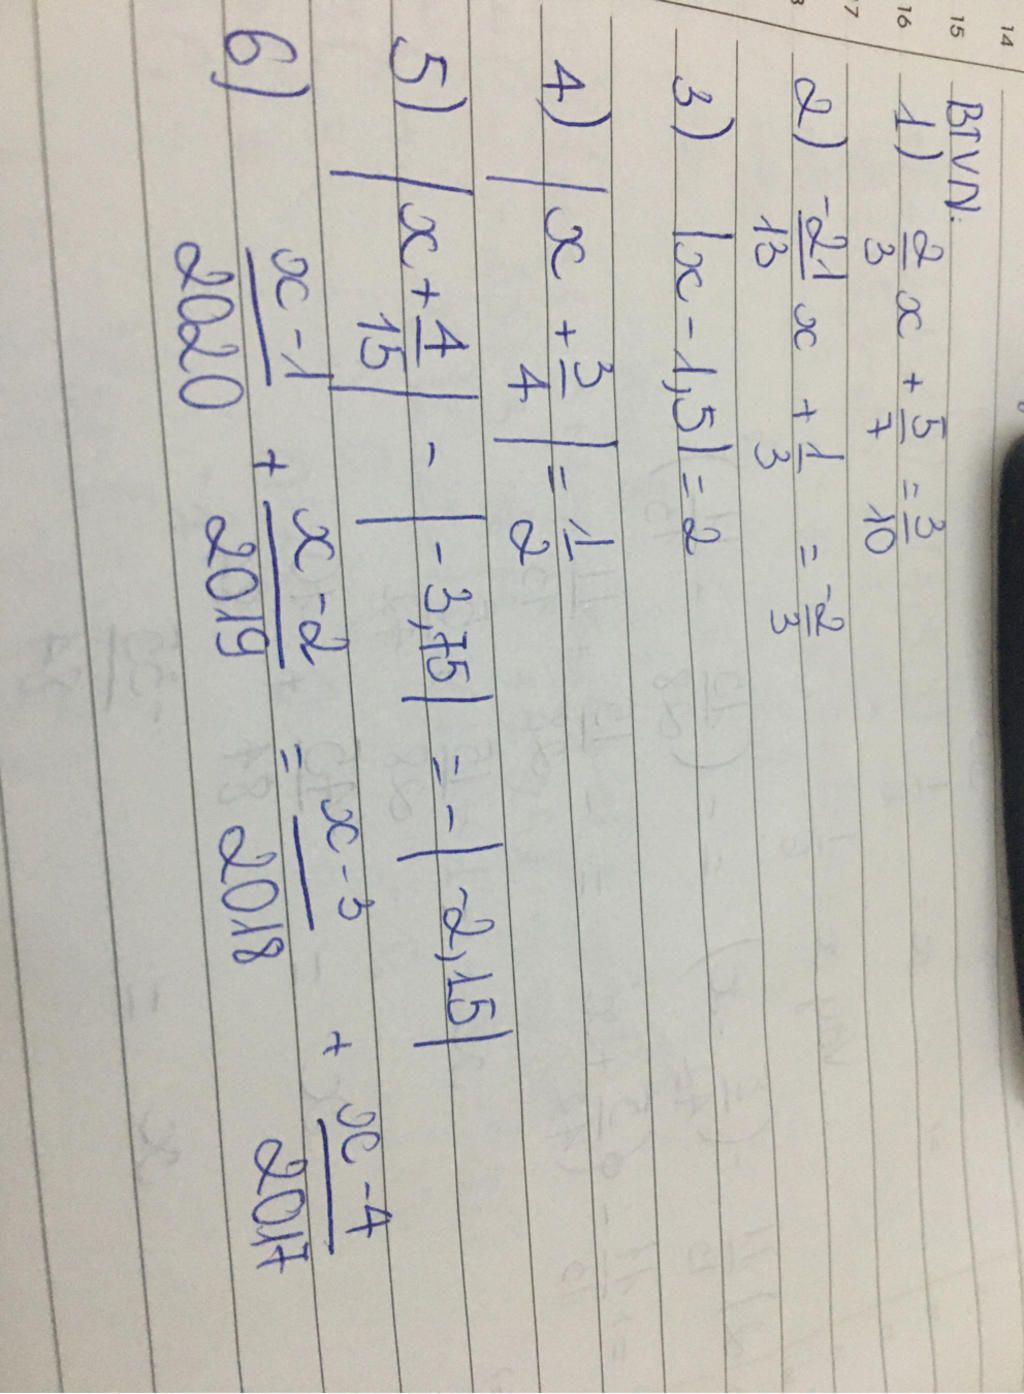 14
15
16
17
8
BTVN:
1) 2/3 x + 5/7 = 3/10
2) -21/13 x + 1/3 = -2/3
3) |x - 1,5| = 2
4) |x + 3/4| = 1/2
5) |x + 4/15| - |-3,75| = -|-2,15|
6) x-1/2020 + x-2/2019 = x-3/2018 + x-4/2017